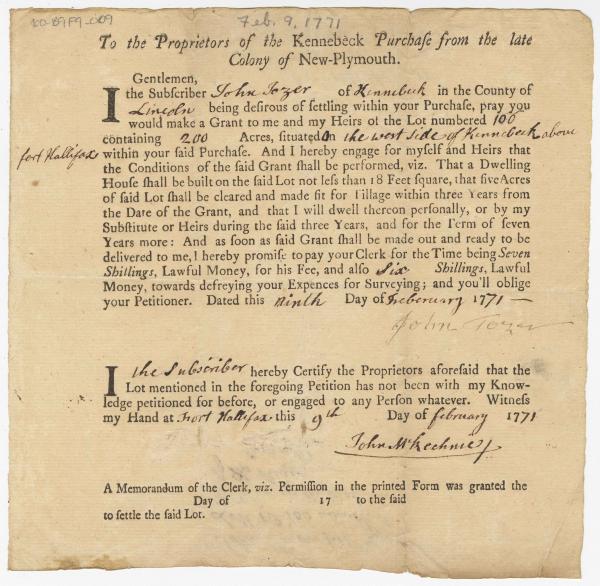 Feb. 9, 1771
To the Proprietors of the Kennebeck Purchase from the late
Colony of New-Plymouth.
Gentlemen,
I the Subscriber John Tozer of Kennebeck in the County of
Lincoln being desirous of settling within your Purchase, pray you
would make a Grant to me and my Heirs of the Lot numbered 100
containing 200 Acres, situated On the west side of Kennebeck above
fort Hallifax within your said Purchase. And I hereby engage for myself and Heirs that
the Conditions of the said Grant shall be performed, viz. That a Dwelling
House shall be built on the said Lot not less than 18 Feet square, that five Acres
of said Lot shall be cleared and made fit for Tillage within three Years from
the Date of the Grant, and that I will dwell thereon personally, or by my
Substitute or Heirs during the said three Years, and for the Term of seven
Years more: And as soon as said Grant shall be made out and ready to be
delivered to me, I hereby promise to pay your Clerk for the Time being Seven
Shillings, Lawful Money, for his Fee, and also Six Shillings, Lawful
Money, towards defreying your Expences for Surveying; and you'll oblige
your Petitioner. Dated this Ninth Day of Feberuary 1771
John Tozer
I the Subscriber hereby Certify the Proprietors aforesaid that the
Lot mentioned in the foregoing Petition has not been with my Know-
ledge petitioned for before, or engaged to any Person whatever. Witness
my Hand at Fort Hallifax this 9th Day of february 1771
John McKechnie
A Memorandum of the Clerk, viz. Permission in the printed Form was granted the
Day of 17 to the said
to settle the said Lot.